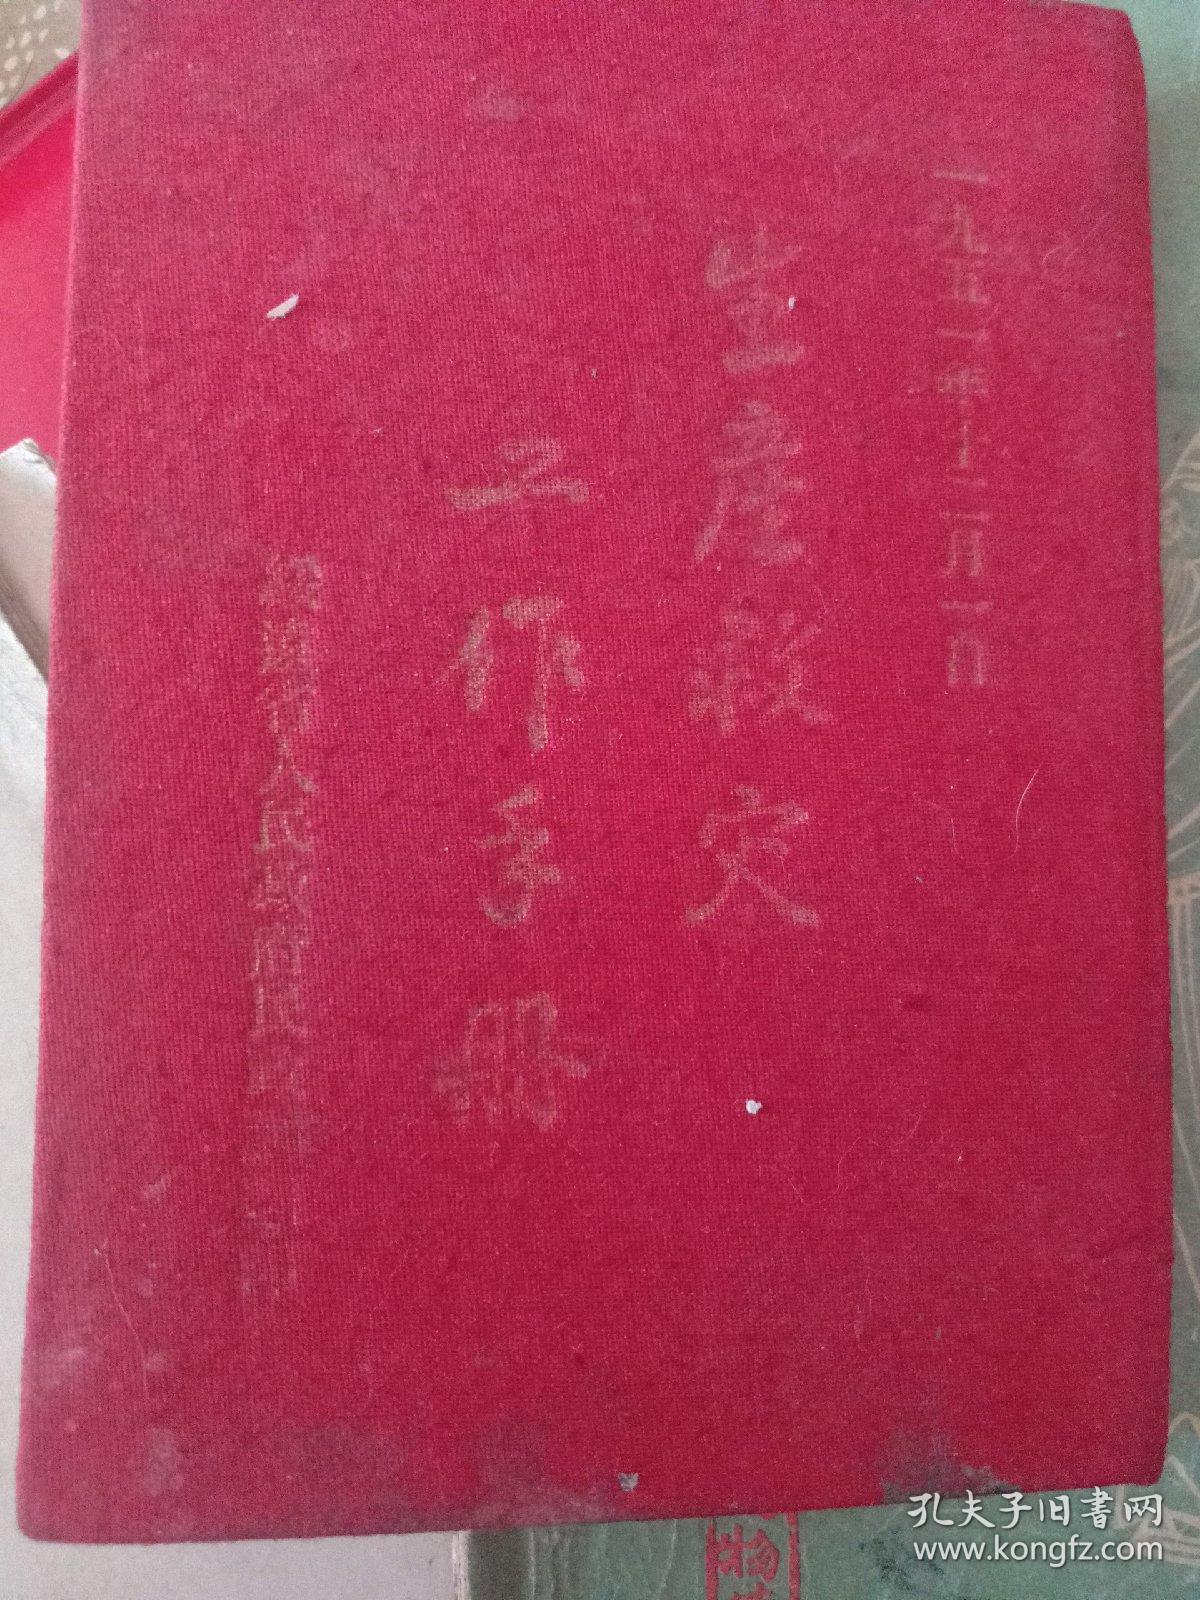 一九五一年十二月一日
生産救灾
工作手册
綏遠省人民政府民政廳 印
孔夫子旧書网
www.kongfz.com
物